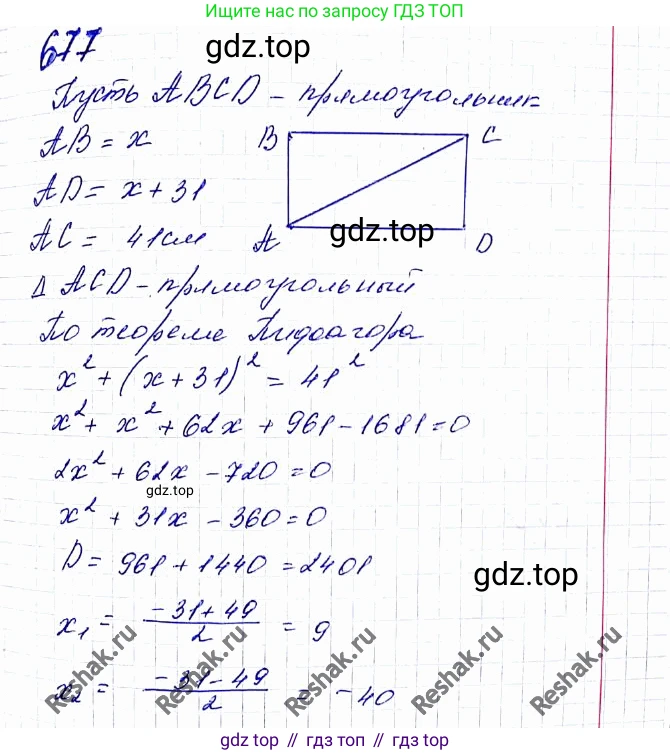 Ищите нас по запросу ГДЗ ТОП
677
gdz.top
Пусть ABCD - прямоугольник
AB = x
B
C
AD = x + 31
AC = 41см
A
gdz.top
D
Δ ACD - прямоугольный
По теореме Пифагора
x² + (x + 31)² = 41²
x² + x² + 62x + 961 - 1681 = 0
2x² + 62x - 720 = 0
gdz.top
x² + 31x - 360 = 0
D = 961 + 1440 = 2401
gdz.top
x₁ = (-31 + 49)/2 = 9
x₂ = (-31 - 49)/2 = -40
Reshak.ru
Reshak.ru
Reshak.ru
Reshak.ru
gdz.top // гдз.топ // гдз.top